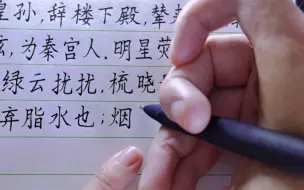 皇孙,辞楼下殿,辇
弦,为秦宫人.明星荧
绿云扰扰,梳晓
弃脂水也;烟